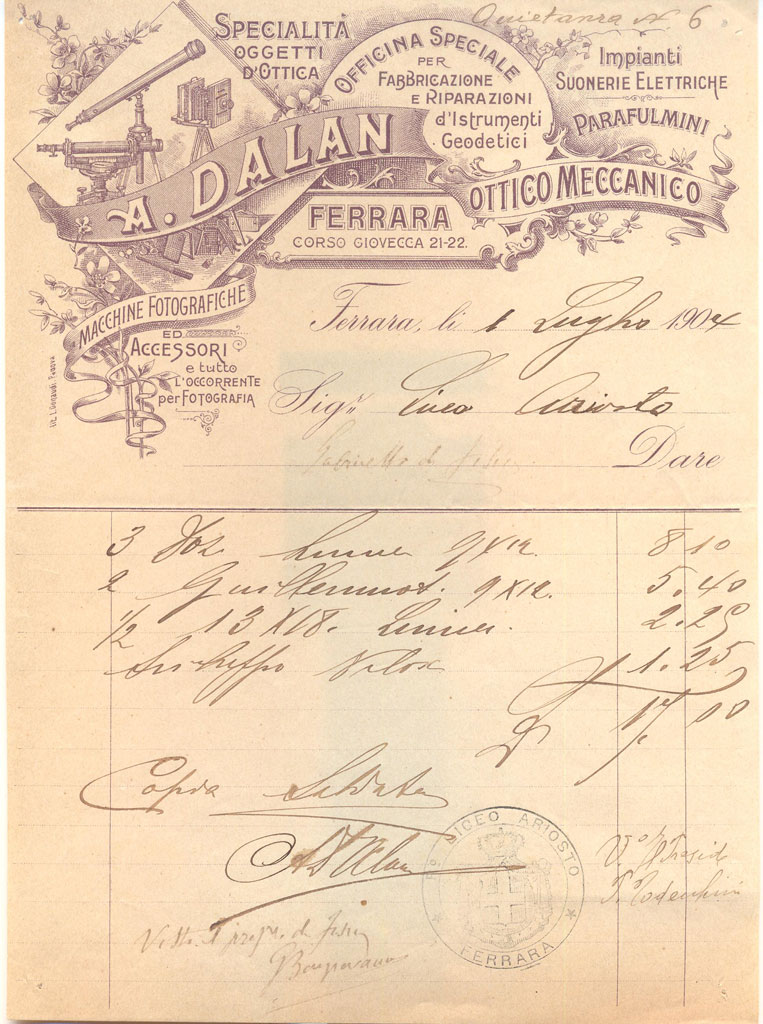 Quietanza N. 6
SPECIALITÀ
OGGETTI
D'OTTICA
OFFICINA SPECIALE
PER
FABBRICAZIONE
E RIPARAZIONI
d'ISTRUMENTI
GEODETICI
IMPIANTI
SUONERIE ELETTRICHE
PARAFULMINI
A. DALAN
OTTICO MECCANICO
FERRARA
CORSO GIOVECCA 21-22.
MACCHINE FOTOGRAFICHE
ED
ACCESSORI
e tutto
L'OCCORRENTE
per FOTOGRAFIA
Ferrara, li 1 Luglio 1904
Sigr Liceo Ariosto
Gabinetto di fisica
Dare
3 Doz Lumier 9X12. 8 10
2 Guilleminot. 9X12. 5.40
1/2 13X18. Lumier. 2.25
Velox 1.25
17.00
Copia Saldata
ADalan
R.o LICEO ARIOSTO
FERRARA
V.o Il Preside
Visto Il prof. di fisica